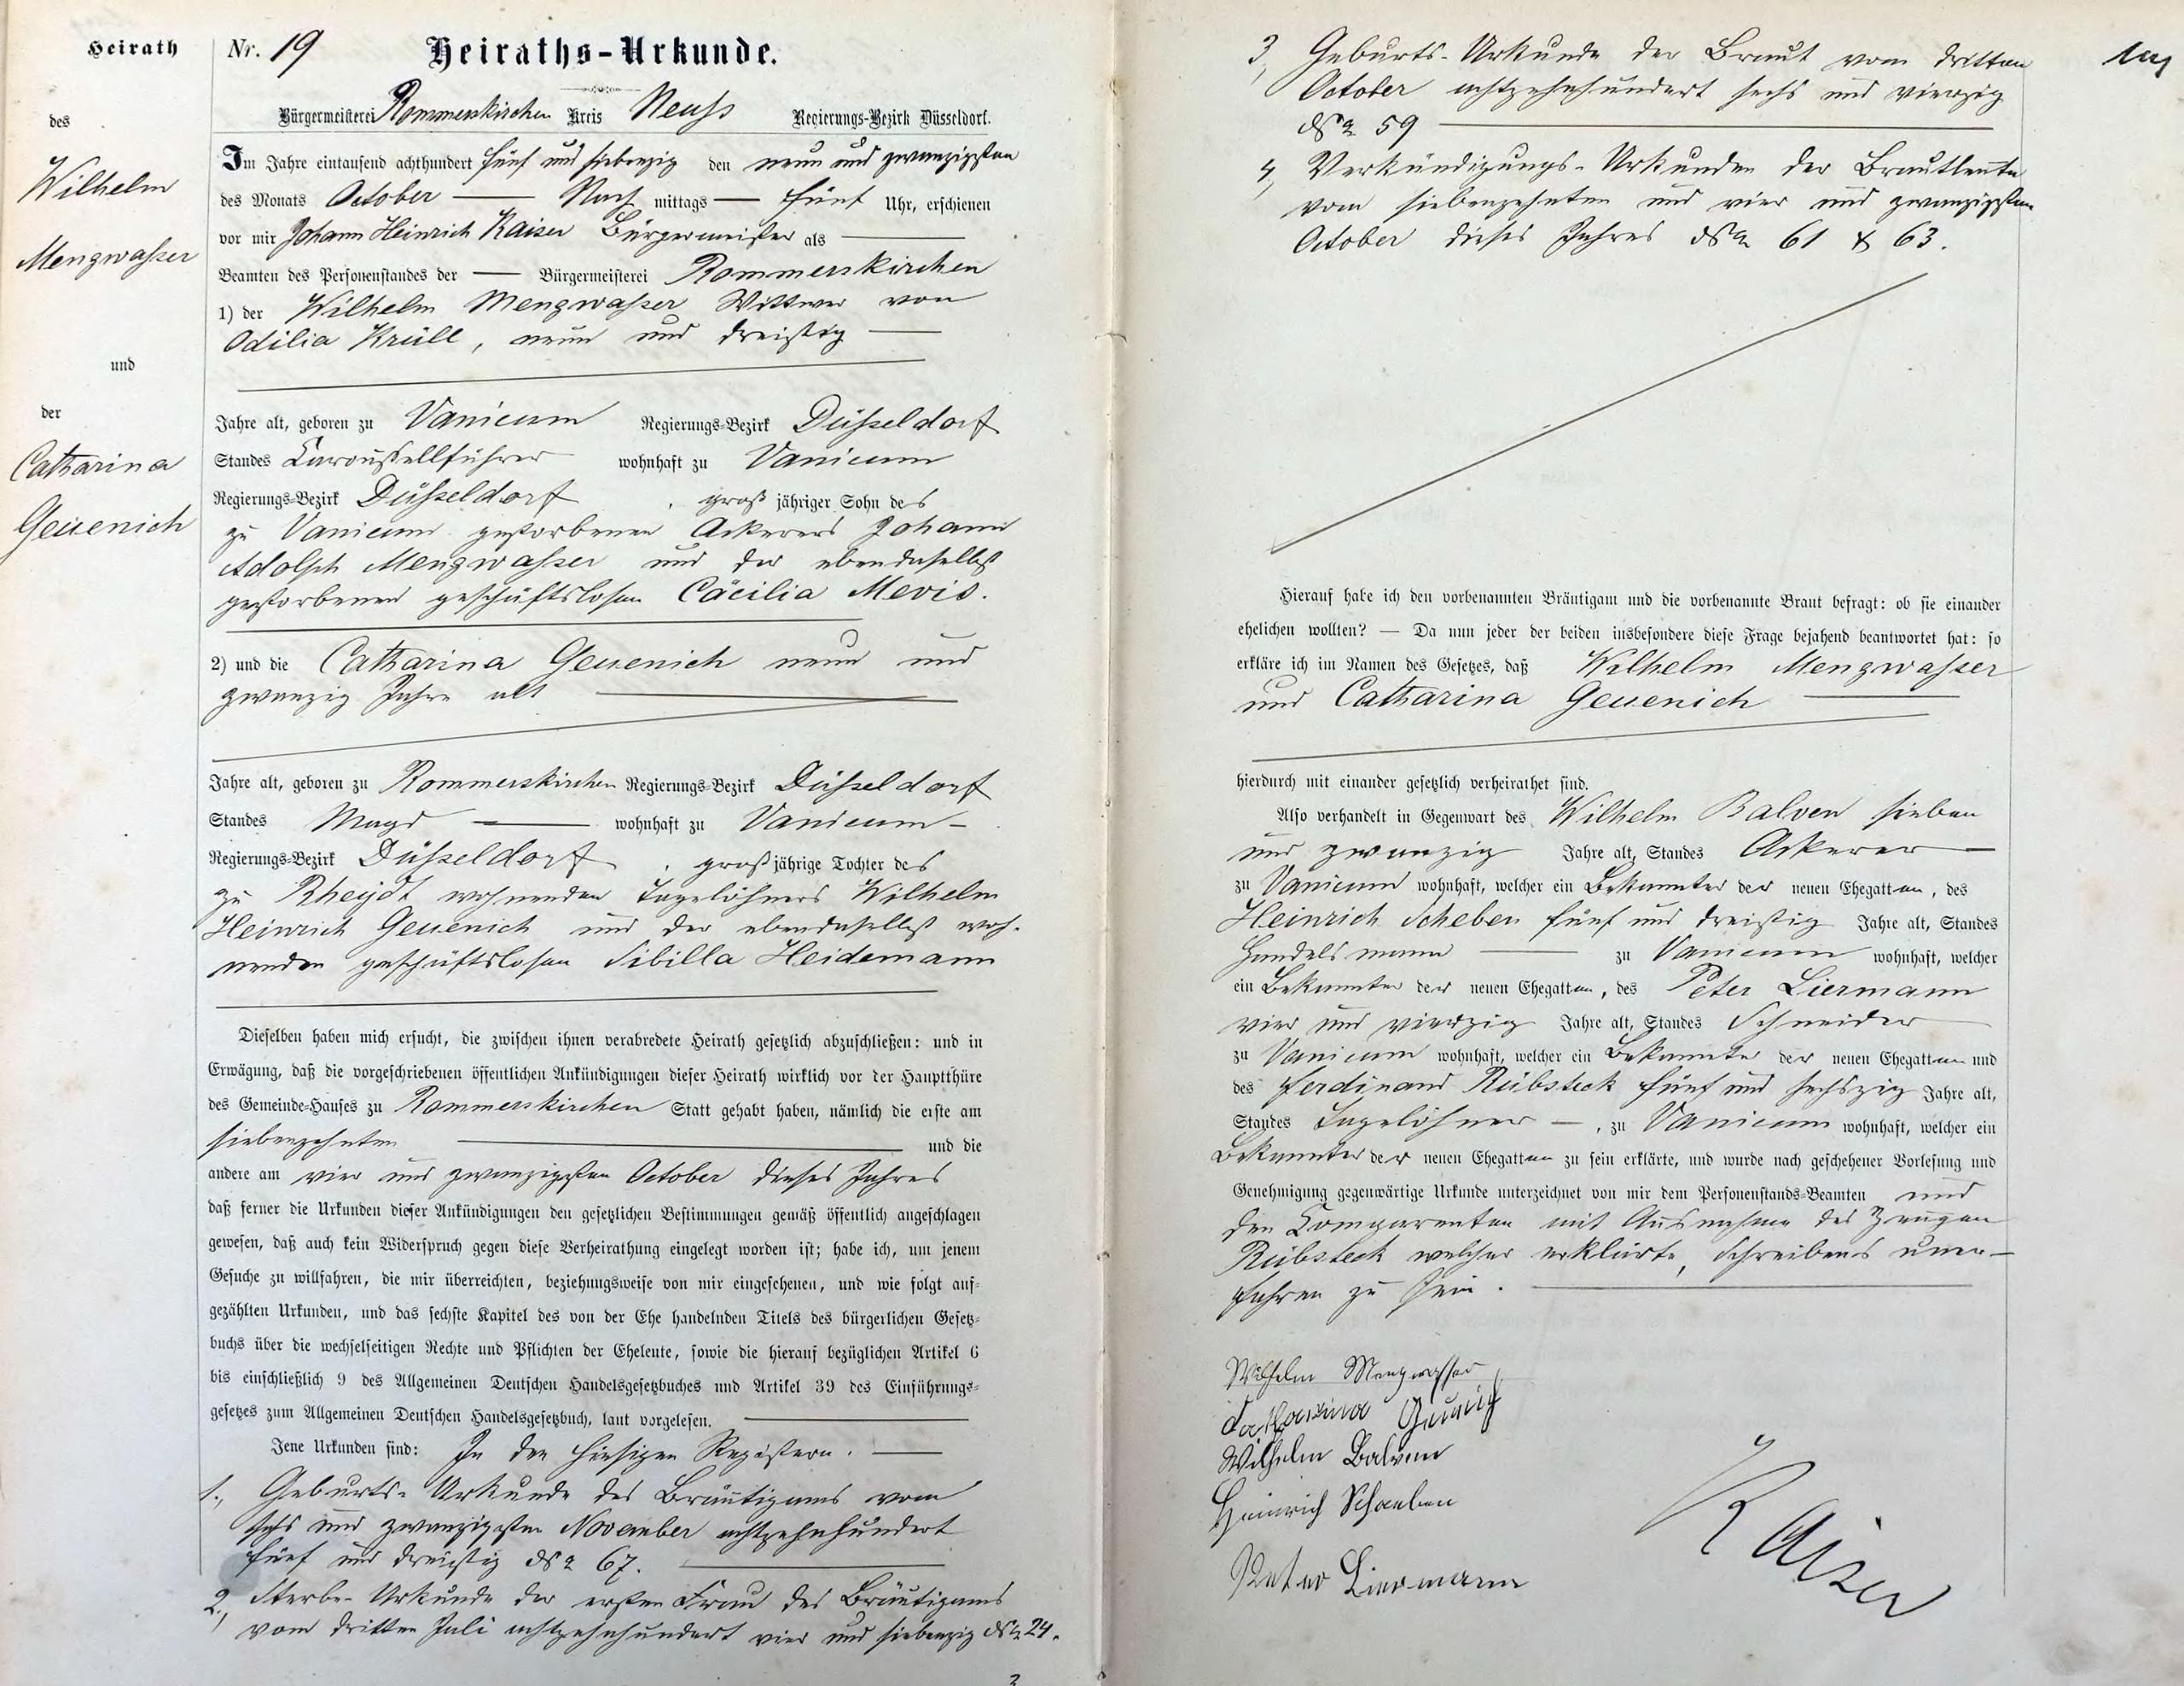 Heirath
des
Wilhelm
Mengwasser
und
der
Catharina
Geuenich
Nr. 19 Heiraths-Urkunde.
Bürgermeisterei Rommerskirchen Kreis Neuss Regierungs-Bezirk Düsseldorf.
Im Jahre eintausend achthundert fünf und siebenzig den neun und zwanzigsten
des Monats October — Nach mittags — fünf Uhr, erschienen
vor mir Johann Heinrich Kaiser Bürgermeister als —
Beamten des Personenstandes der — Bürgermeisterei Rommerskirchen
1) der Wilhelm Mengwasser Wittwer von
Odilia Krüll, neun und dreißig —
Jahre alt, geboren zu Vanicum Regierungs-Bezirk Düsseldorf
Standes Caroussellführer wohnhaft zu Vanicum
Regierungs-Bezirk Düsseldorf, groß jähriger Sohn des
zu Vanicum gestorbenen Ackerers Johann
Adolph Mengwasser und der ebendaselbst
gestorbenen geschäftslosen Cäcilia Mevis.
2) und die Catharina Geuenich neun und
zwanzig Jahre alt —
Jahre alt, geboren zu Rommerskirchen Regierungs-Bezirk Düsseldorf
Standes Magd — wohnhaft zu Vanicum —
Regierungs-Bezirk Düsseldorf, groß jährige Tochter des
zu Rheydt wohnenden Tagelöhners Wilhelm
Heinrich Geuenich und der ebendaselbst woh-
nenden geschäftslosen Sibilla Heidemann
Dieselben haben mich ersucht, die zwischen ihnen verabredete Heirath gesetzlich abzuschließen: und in
Erwägung, daß die vorgeschriebenen öffentlichen Ankündigungen dieser Heirath wirklich vor der Hauptthüre
des Gemeinde-Hauses zu Rommerskirchen Statt gehabt haben, nämlich die erste am
siebenzehnten — und die
andere am vier und zwanzigsten October dieses Jahres
daß ferner die Urkunden dieser Ankündigungen den gesetzlichen Bestimmungen gemäß öffentlich angeschlagen
gewesen, daß auch kein Widerspruch gegen diese Verheirathung eingelegt worden ist; habe ich, um jenem
Gesuche zu willfahren, die mir überreichten, beziehungsweise von mir eingesehenen, und wie folgt auf-
gezählten Urkunden, und das sechste Kapitel des von der Ehe handelnden Titels des bürgerlichen Gesetz-
buchs über die wechselseitigen Rechte und Pflichten der Eheleute, sowie die hierauf bezüglichen Artikel 6
bis einschließlich 9 des Allgemeinen Deutschen Handelsgesetzbuches und Artikel 39 des Einführungs-
gesetzes zum Allgemeinen Deutschen Handelsgesetzbuch, laut vorgelesen. —
Jene Urkunden sind: In den hiesigen Registern. —
1., Geburts-Urkunde des Bräutigams vom
sechs und zwanzigsten November achtzehnhundert
fünf und dreißig No 67. —
2., Sterbe-Urkunde der ersten Frau des Bräutigams
vom dritten Juli achtzehnhundert vier und siebenzig No 24.
3, Geburts-Urkunde der Braut vom dritten
October achtzehnhundert sechs und vierzig
No 59 —
4, Verkündigungs-Urkunden der Brautleute
vom siebenzehnten und vier und zwanzigsten
October dieses Jahres No 61 & 63.
Hierauf habe ich den vorbenannten Bräutigam und die vorbenannte Braut befragt: ob sie einander
ehelichen wollten? — Da nun jeder der beiden insbesondere diese Frage bejahend beantwortet hat: so
erkläre ich im Namen des Gesetzes, daß Wilhelm Mengwasser
und Catharina Geuenich —
hierdurch mit einander gesetzlich verheirathet sind.
Also verhandelt in Gegenwart des Wilhelm Balven sieben
und zwanzig Jahre alt, Standes Ackerer —
zu Vanicum wohnhaft, welcher ein Bekannter der neuen Ehegatten, des
Heinrich Scheben fünf und dreißig Jahre alt, Standes
Handelsmann — zu Vanicum wohnhaft, welcher
ein Bekannter der neuen Ehegatten, des Peter Liermann
vier und vierzig Jahre alt, Standes Schneider
zu Vanicum wohnhaft, welcher ein Bekannter der neuen Ehegatten und
des Ferdinand Rübsteck fünf und sechszig Jahre alt,
Standes Tagelöhner —, zu Vanicum wohnhaft, welcher ein
Bekannter der neuen Ehegatten zu sein erklärte, und wurde nach geschehener Vorlesung und
Genehmigung gegenwärtige Urkunde unterzeichnet von mir dem Personenstands-Beamten und
den Comparenten mit Ausnahme des Zeugen
Rübsteck welcher erklärte, Schreibens uner-
fahren zu sein. —
Wilhelm Mengwasser
Catharina Geuenich
Wilhelm Balven
Heinrich Schaeben
Peter Liermann
Kaiser